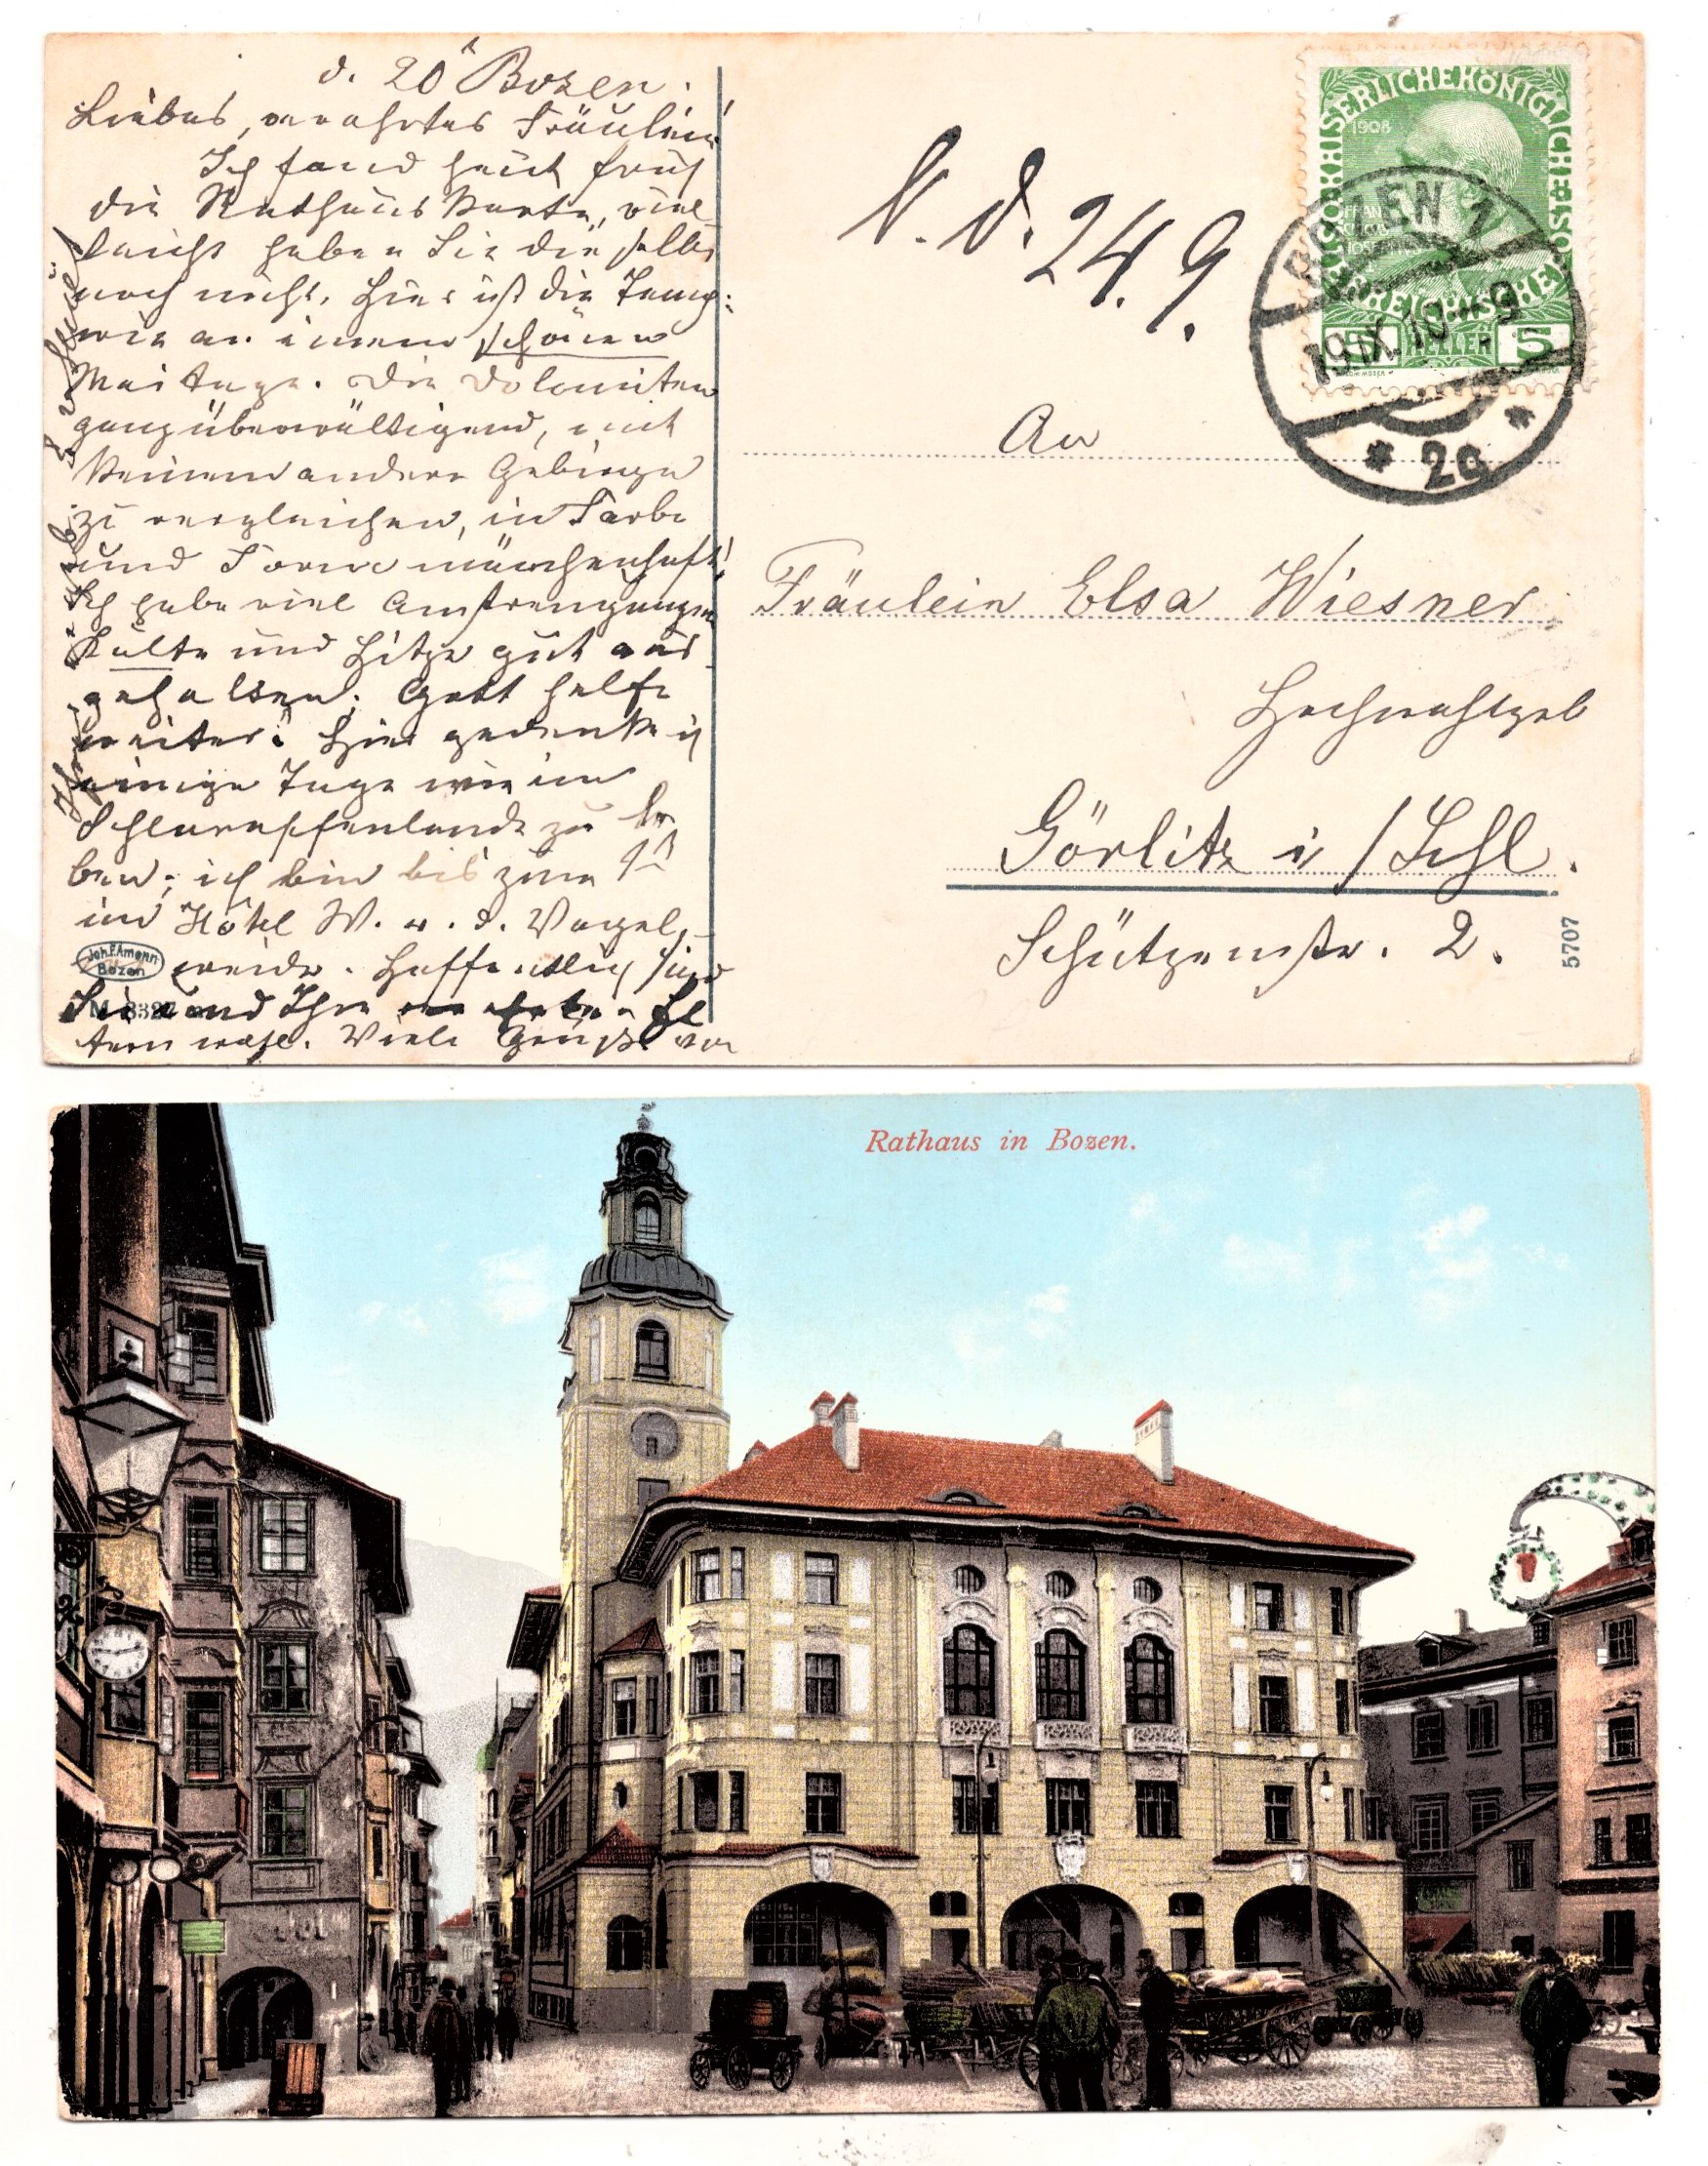 d. 20 Bozen.
Liebes, verehrtes Fräulein!
Ich fand heut früh
die Rathaus Karte, viel
leicht haben Sie dieselbe
noch nicht. Hier ist die Temp:
wie an einem schönen
Maitage. Die Dolomiten
ganz überwältigend, mit
keinem andern Gebirge
zu vergleichen, in Farbe
und Form märchenhaft!
Ich habe viel Anstrengungen
Kälte und Hitze gut aus
gehalten; Gott helfe
weiter! Hier gedenke ich
einige Tage wie im
Schlaraffenlande zu le
ben; ich bin bis zum
im Hôtel W. v. d. Vogel
weide. Hoffentlich sind
Sie und Ihre verehrten El
tern wohl. Viele Grüße von
Joh. F. Amonn
Bozen
N. d. 24. 9.
KAISERLICHE KÖNIGLICHE ÖSTERREICHISCHE
1908
5 HELLER 5
BOZEN 1
19 IX 10 - 9
* 2a *
An
Fräulein Elsa Wiesner
Hochwohlgeb
Görlitz i/Schl.
Schützenstr. 2.
5707
Rathaus in Bozen.